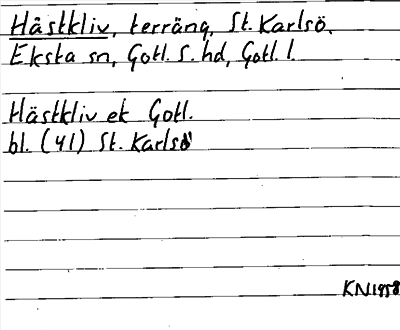 Håstkliv, terräng, St. Karlsö.
Eksta sn, Gotl. S. hd, Gotl. l.
Hästkliv ek Gotl.
bl. (41) St. Karlsö
KN1958